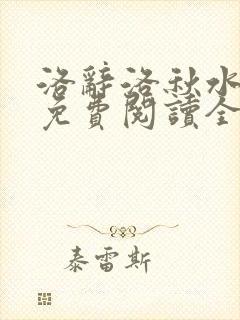 洛辭洛秋水
免費閱讀全
泰雷斯